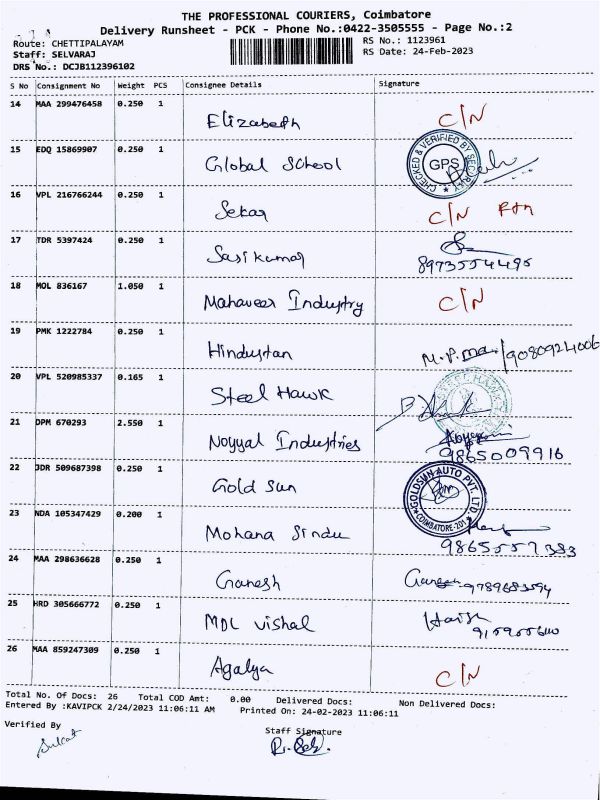 THE PROFESSIONAL COURIERS, Coimbatore
Delivery Runsheet - PCK - Phone No.:0422-3505555 - Page No.:2
Route: CHETTIPALAYAM RS No.: 1123961
Staff: SELVARAJ RS Date: 24-Feb-2023
DRS No.: DCJB112396102
S No Consignment No Weight PCS Consignee Details Signature
14 MAA 299476458 0.250 1 Elizabeth C/N
15 EDQ 15869907 0.250 1 Global School CHECKED & VERIFIED BY SECURITY GPS
16 VPL 216766244 0.250 1 Sekar C/N
17 TDR 5397424 0.250 1 Sasikumar
8973554495
18 MOL 836167 1.050 1 Mahaveer Industry C/N
19 PMK 1222784 0.250 1 Hindustan 9080924006
20 VPL 520985337 0.165 1 Steel Hawk
21 DPM 670293 2.550 1 Noyyal Industries
9865009916
22 JDR 509687398 0.250 1 Gold Sun GOLDSUN AUTO PVT. LTD.
23 NDA 105347429 0.200 1 Mohana Sindu
9865557383
24 MAA 298636628 0.250 1 Ganesh Ganesh
25 HRD 305666772 0.250 1 MDL vishal
26 MAA 859247309 0.250 1 Agalya C/N
Total No. Of Docs: 26 Total COD Amt: 0.00 Delivered Docs: Non Delivered Docs:
Entered By :KAVIPCK 2/24/2023 11:06:11 AM Printed On: 24-02-2023 11:06:11
Verified By Staff Signature